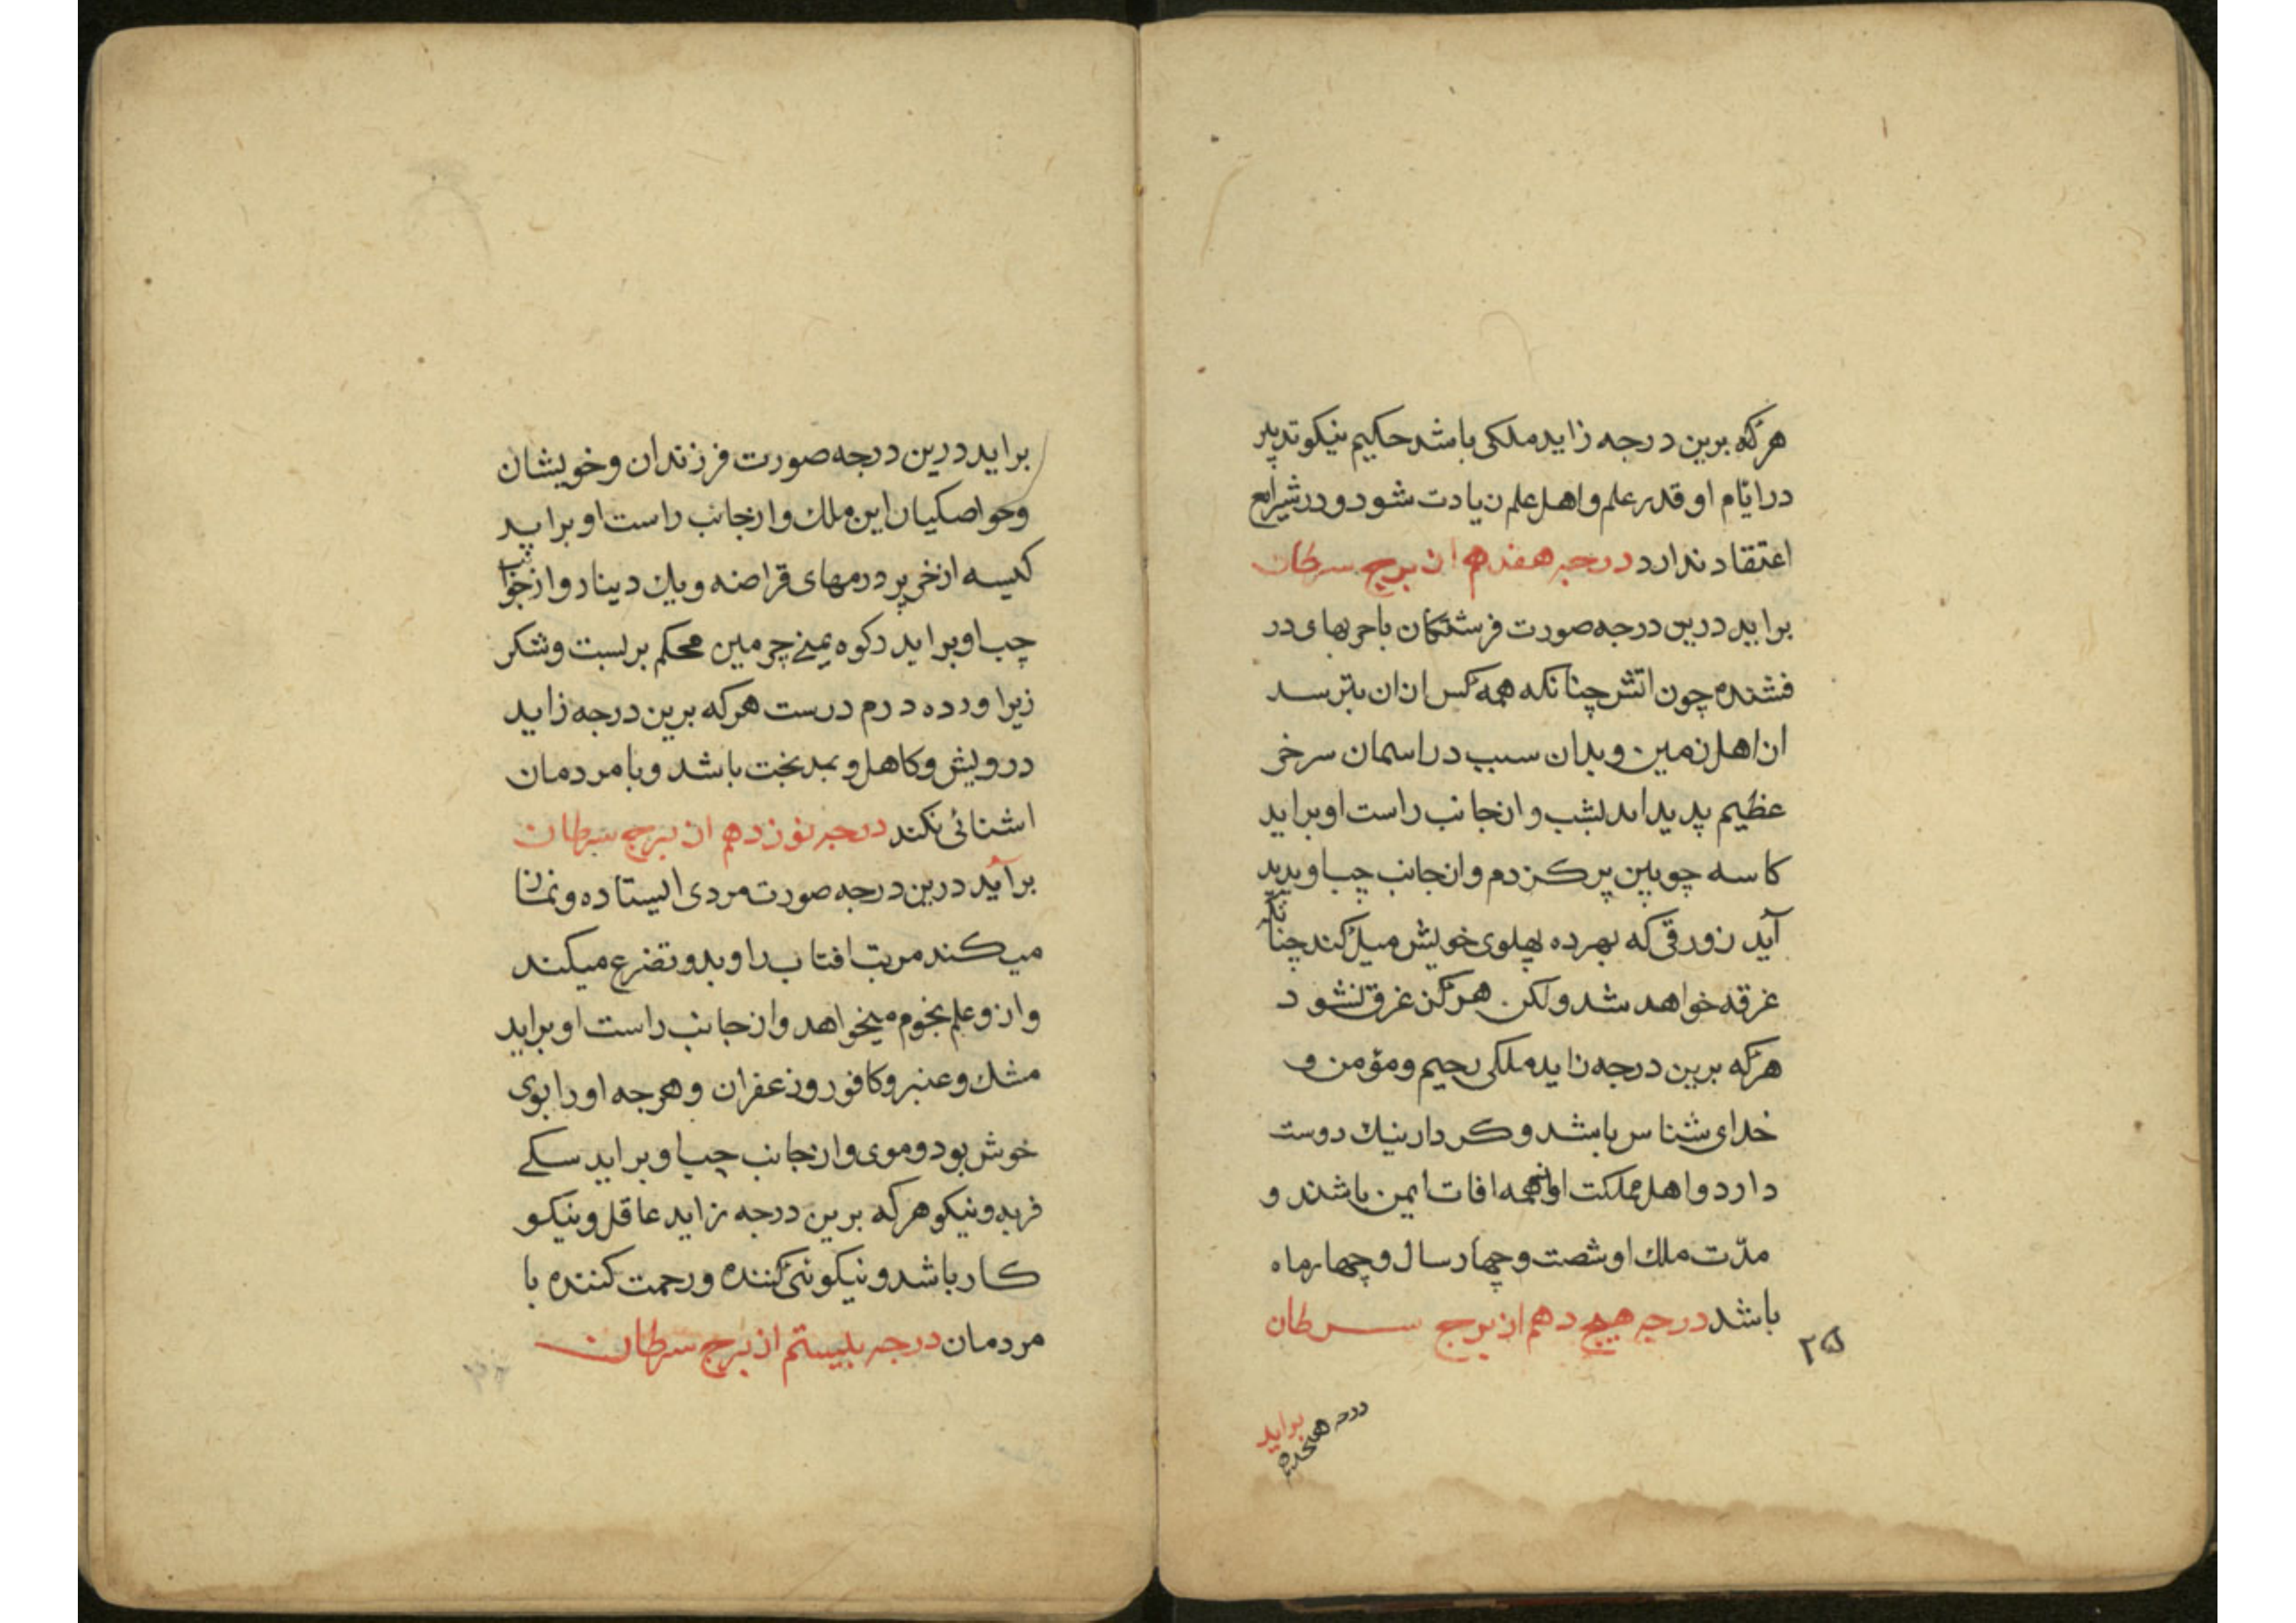 هرکه برین درجه زاید ملکی باشد حکیم نیکو تدبیر
در ایّام او قدر علم و اهل علم زیادت شود و در شرایع
اعتقاد ندارد درجه هفدهم از برج سرطان
براید درین درجه صورت فرشتکان با حربهای در
فشنده چون اتش چنانکه همه کس ازان بترسد
از اهل زمین و بدان سبب در اسمان سرخی
عظیم پدید اید بشب و از جانب راست او براید
کاسه چوبین پر کزدم و از جانب چپ او پدید
آید زورقی که بهر ده پهلوی خویش میل کند چنانکه
غرقه خواهد شد ولکن هرکز غرق نشود
هرکه برین درجه زاید ملکی رحیم و مؤمن و
خدای شناس باشد و کردار نیك دوست
دارد و اهل مملکت او از همه افات ایمن باشند و
مدّت ملك او شصت و چهار سال و چهار ماه
باشد درجه هیچدهم از برج سرطان
۲۵
براید
درجه هیجدهم
براید درین درجه صورت فرزندان و خویشان
و خواصکیان این ملك و از جانب راست او براید
کیسه از خز پر درمهای قراضه و یك دینار و از جانب
چپ او براید رکوه یمنی چرمین محکم بربست و شکر
زیر اورده درم درست هرکه برین درجه زاید
درویش و کاهل و بدبخت باشد و با مردمان
اشنائی نکند درجه نوزدهم از برج سرطان
برآید درین درجه صورت مردی ایستاده و نماز
میکند مر بت افتاب را و بدو تضرع میکند
و ازو علم نجوم میخواهد و از جانب راست او براید
مشك و عنبر و کافور و زعفران و هرچه او را بوی
خوش بود و موی و از جانب چپ او براید سکی
فربه و نیکو هرکه برین درجه زاید عاقل و نیکو
کار باشد و نیکوئی کننده و رحمت کننده با
مردمان درجه بیستم از برج سرطان